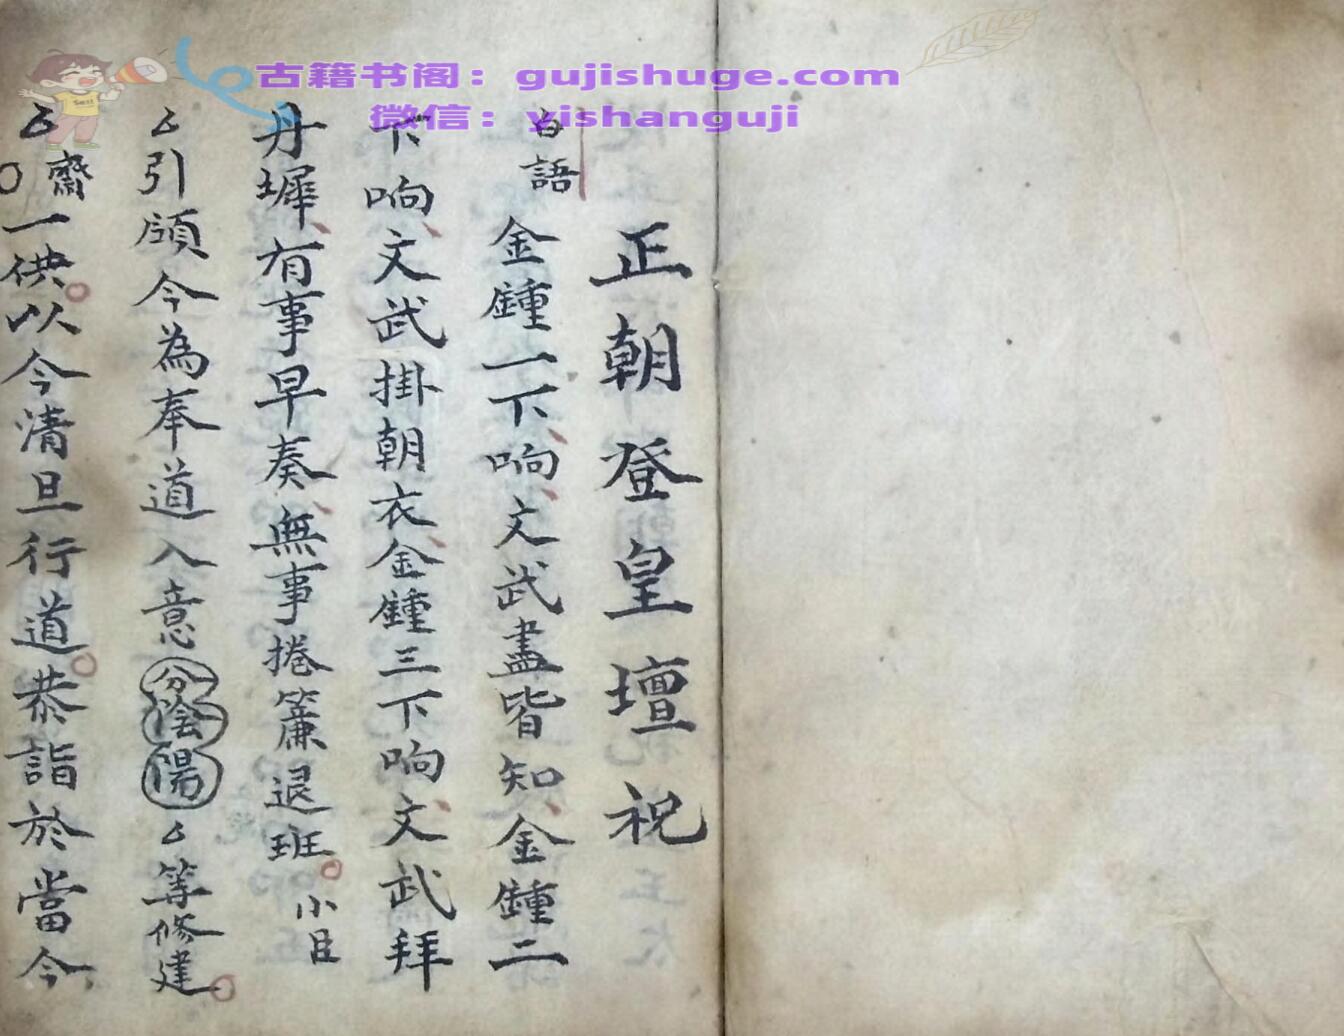 古籍书阁：gujishuge.com
微信：yishanguji
正朝登皇壇祝
白語 金鍾一下响文武盡皆知金鍾二
下响文武掛朝衣金鍾三下响文武拜
丹墀有事早奏無事捲簾退班 小臣
厶引頋今為奉道入意分陰陽厶等修建
厶齋一供以今清旦行道恭詣於當今